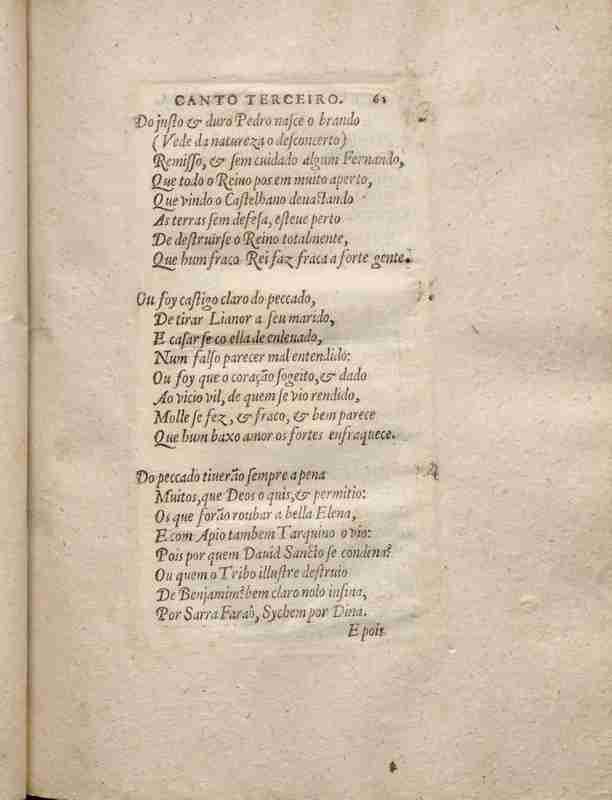 CANTO TERCEIRO. 61
Do justo & duro Pedro nasce o brando
(Vede da natureza o desconcerto)
Remisso, & sem cuidado algum Fernando,
Que todo o Reino pos em muito aperto,
Que vindo o Castelhano deuastando
As terras sem defesa, esteue perto
De destruirse o Reino totalmente,
Que hum fraco Rei faz fraca a forte gente.
Ou foy castigo claro do peccado,
De tirar Lianor a seu marido,
E casarse co ella de enleuado,
Num falso parecer mal entendido:
Ou foy que o coração sogeito, & dado
Ao vicio vil, de quem se vio rendido,
Molle se fez, & fraco, & bem parece
Que hum baxo amor os fortes enfraquece.
Do peccado tiuerão sempre a pena
Muitos, que Deos o quis, & permitio:
Os que forão roubar a bella Elena,
E com Apio tambem Tarquino o vio:
Pois por quem Dauid Sancto se condena?
Ou quem o Tribo illustre destruio
De Benjamim? bem claro nolo insina,
Por Sarra Faraò, Sychem por Dina.
E pois